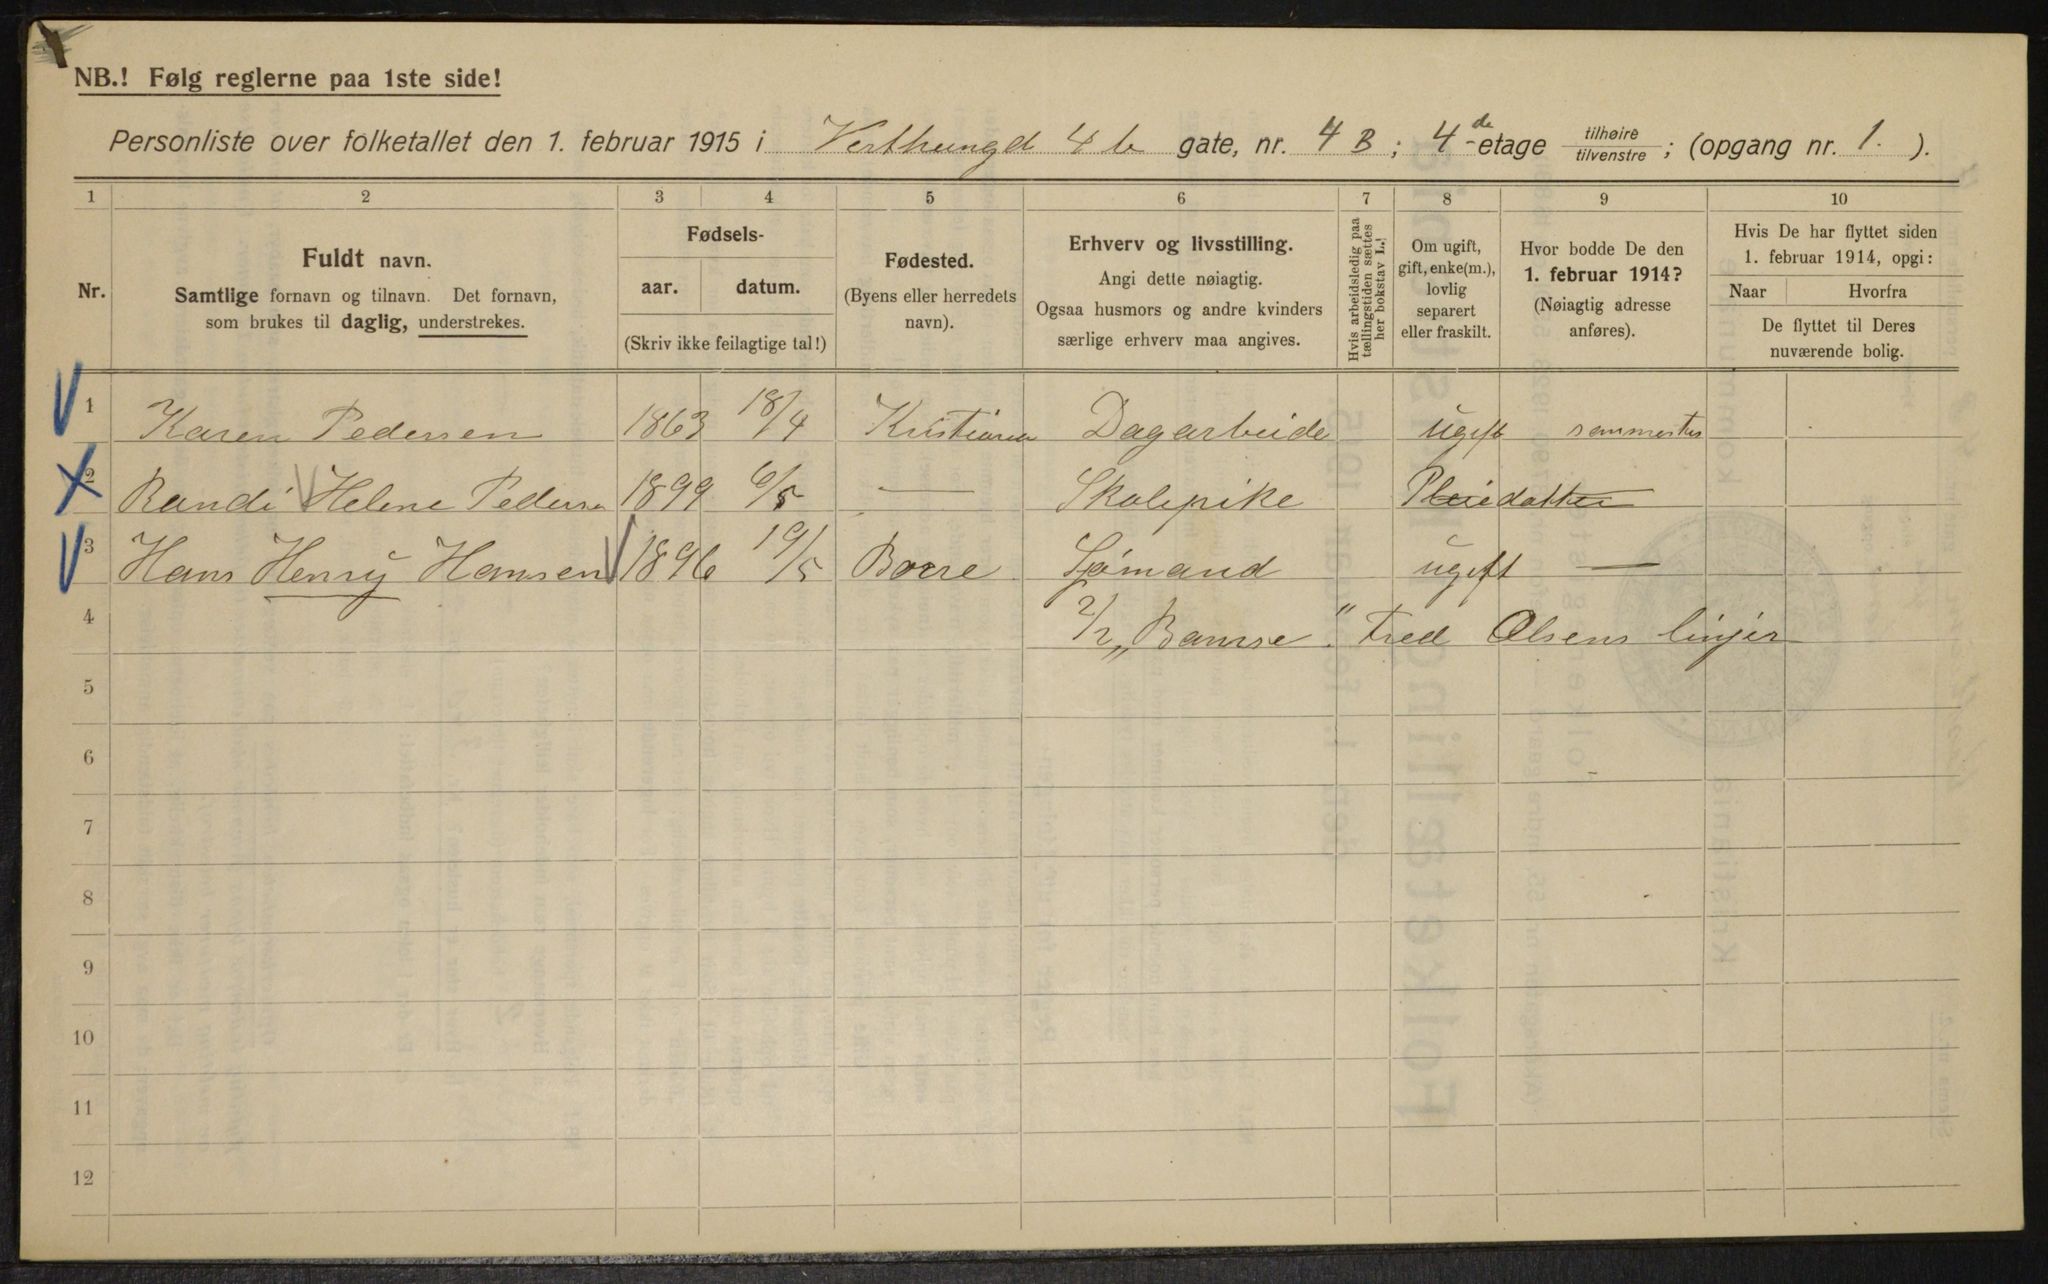 NB.! Følg reglerne paa 1ste side!
Personliste over folketallet den 1. februar 1915 i Verthungd 4 b gate, nr. 4 B; 4de-etage tilhøire/tilvenstre; (opgang nr. 1.).
1 2 3 4 5 6 7 8 9 10
Nr.
Fuldt navn.
Samtlige fornavn og tilnavn. Det fornavn,
som brukes til daglig, understrekes.
Fødsels-
aar. datum.
(Skriv ikke feilagtige tal!)
Fødested.
(Byens eller herredets
navn).
Erhverv og livsstilling.
Angi dette nøiagtig.
Ogsaa husmors og andre kvinders
særlige erhverv maa angives.
Hvis arbeidsledig paa
tællingstiden sættes
her bokstav L.
Om ugift,
gift, enke(m.),
lovlig
separert
eller fraskilt.
Hvor bodde De den
1. februar 1914?
(Nøiagtig adresse
anføres).
Hvis De har flyttet siden
1. februar 1914, opgi:
Naar Hvorfra
De flyttet til Deres
nuværende bolig.
1 Karen Pedersen 1863 18/4 Kristiania Dagarbeide ugift sammested
2 Randi Helene Pedersen 1899 6/5 — Skolepike Pleiedatter
3 Hans Henry Hansen 1896 19/5 Borre Sjømand ugift —
4 2/2 „Bamse“. Fred Olsens linjer
5
6
7
8
9
10
11
12